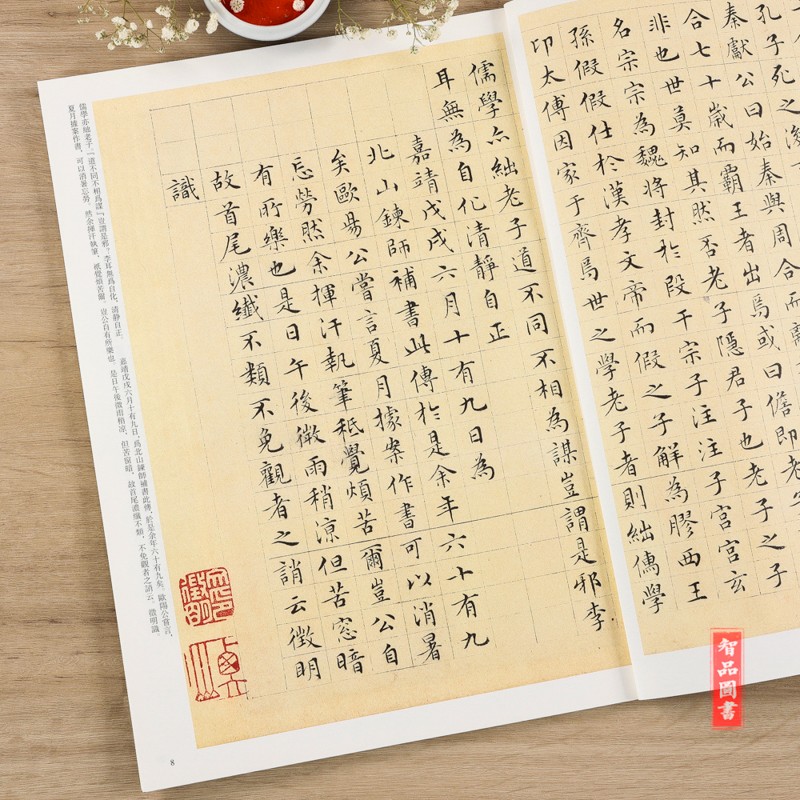 孔子死之
秦獻公曰始秦與周合而離
合七十歲而霸王者出焉或曰儋即老
非也世莫知其然否老子隱君子也老子之子
名宗宗為魏將封於段干宗子注注子宮宮玄
孫假假仕於漢孝文帝而假之子解為膠西王
卬太傅因家于齊焉世之學老子者則絀儒學
儒學亦絀老子道不同不相為謀豈謂是邪李
耳無為自化清靜自正
嘉靖戊戌六月十有九日為
北山鍊師補書此傳於是余年六十有九
矣歐陽公嘗言夏月據案作書可以消暑
忘勞然余揮汗執筆秖覺煩苦爾豈公自
有所樂也是日午後微雨稍涼但苦窓暗
故首尾濃纖不類不免觀者之誚云徵明
識
儒學亦絀老子。『道不同不相爲謀』豈謂是邪？李耳無爲自化，清靜自正。　嘉靖戊戌六月十有九日，爲北山鍊師補書此傳，於是余年六十有九矣。歐陽公嘗言，
夏月據案作書，可以消暑忘勞，然余揮汗執筆，秖覺煩苦爾，豈公自有所樂也。是日午後微雨稍凉，但苦窗暗，故首尾濃纖不類，不免觀者之誚云。徵明識。
8
智品圖書